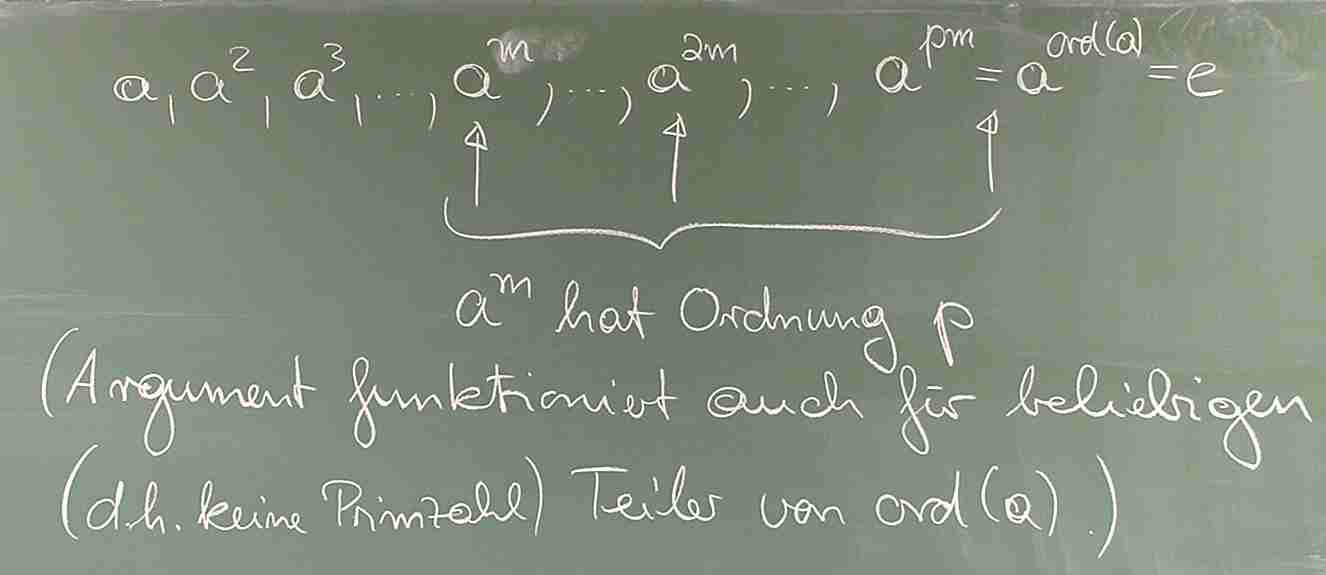 a, a², a³, ..., aᵐ, ..., a²ᵐ, ..., aᵖᵐ = a^ord(a) = e
aᵐ hat Ordnung p
(Argument funktioniert auch für beliebigen
(d.h. keine Primzahl) Teiler von ord(a).)